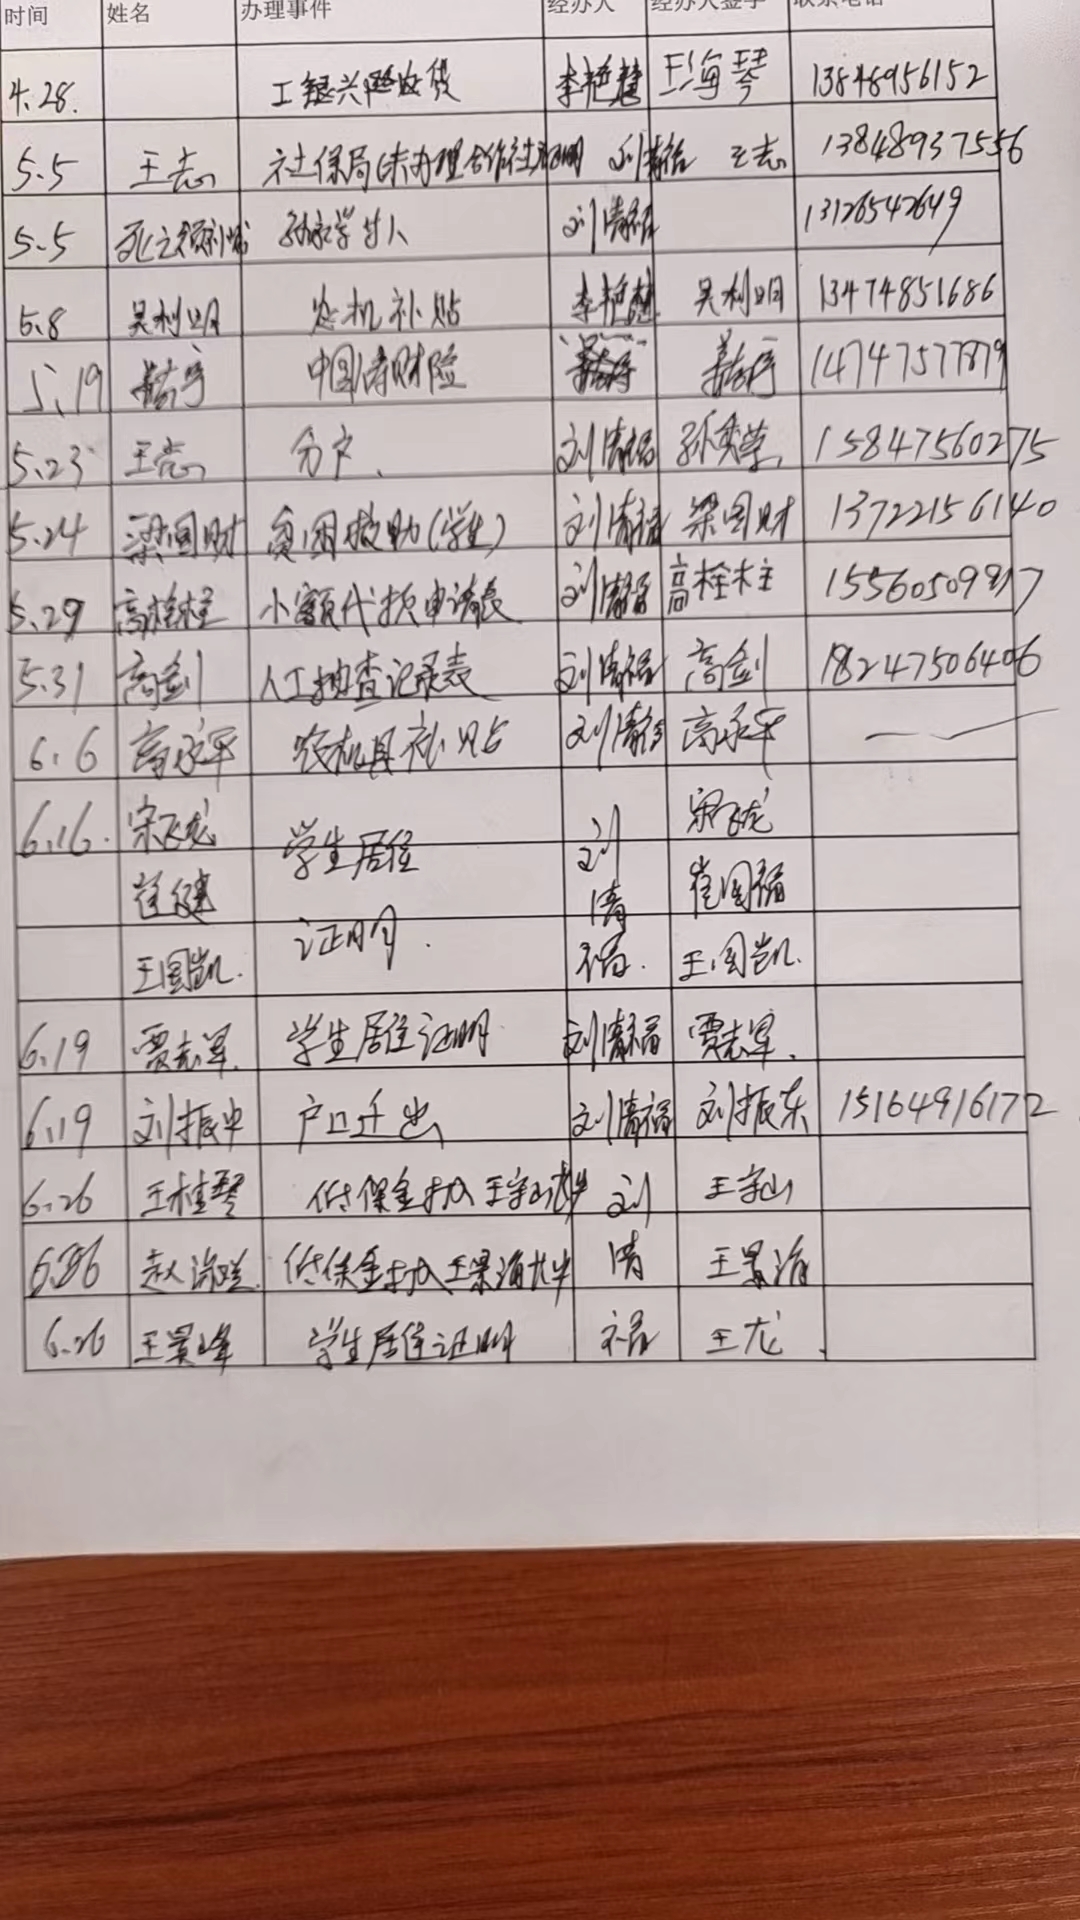 时间 姓名 办理事件 经办人 经办人签字 联系电话
4.28. 李艳慧 王海琴 13848956152
5.5 王志 社保局(未办理合作社)证明 刘清福 王志 13848937556
5.5 死亡领补贴 刘清福 13126542649
5.8 吴利明 农机补贴 李艳慧 吴利明 13474851686
5.19 中国人寿财险 14747577879
5.23 王志 分户. 刘清福 孙秀荣 15847560275
5.24 梁国财 贫困救助(学生) 刘清福 梁国财 13722156140
5.29 高栓柱 小额代换申请表 刘清福 高栓柱
5.31 高剑 人工抽查记录表 刘清福 高剑 18247506406
6.6 高永军 农机具补贴 刘清福 高永军 —
6.16. 宋飞龙 学生居住 刘 宋飞龙
崔健 证明. 清 崔国福
王国凯. 福. 王国凯.
6.19 贾志军. 学生居住证明 刘清福 贾志军.
6.19 刘振中 户口迁出 刘清福 刘振东 15164916172
6.26 王桂琴 低保金打入王守山 刘 王守山
6.26 低保金打入王景海 清 王景海
6.26 王景峰 学生居住证明 福 王龙.